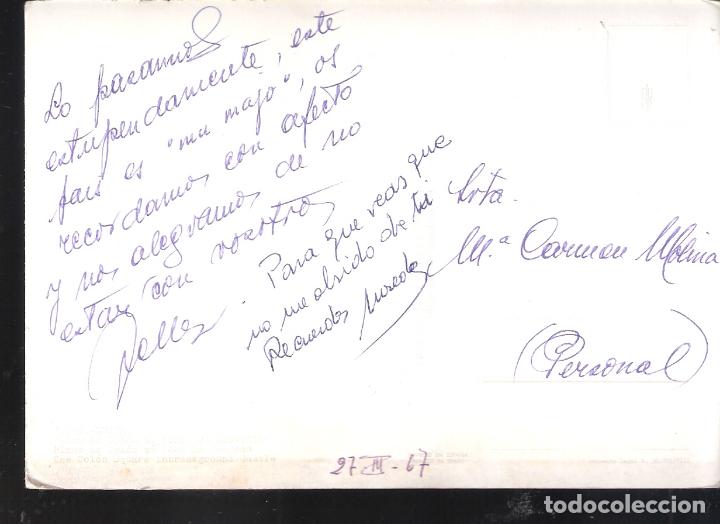 Lo pasamos
estupendamente, este
país es "mu majo", os
recordamos con afecto
y nos alegramos de no
estar con vosotros
Para que veas que
no me olvido de ti
Recuerdos
Srta.
Mª Carmen Molina
(Personal)
27-III-67
todocoleccion.net